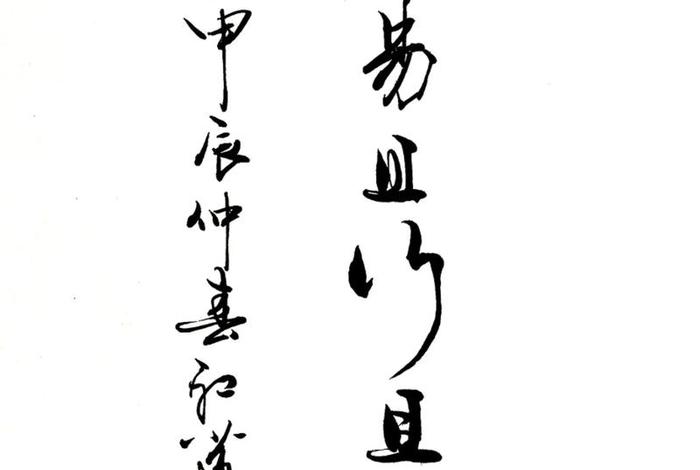 易且行且
甲辰仲春